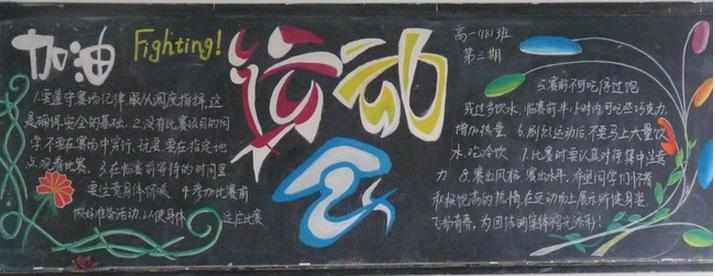 加油
Fighting!
运动会
高一(18)班
第三期
1.要遵守赛场纪律,服从调度指挥,这
是确保安全的基础. 2.没有比赛项目的同
学不要在赛场中穿行、玩耍,要在指定地
点观看比赛。3.在临赛前等待的时间里
要注意身体保暖 4.参加比赛前
做好准备活动,以使身体 适应比赛
5.赛前不可吃得过饱
或过多饮水,临赛前半小时内可吃些巧克力,
增加热量 6.剧烈运动后不要马上大量饮
水、吃冷饮 7.比赛时要认真对待集中注意
力 8.赛出风格,赛出水平,希望同学们怀着
饱满的热情,在运动场上展示矫健身姿,
飞扬青春,为团结的集体